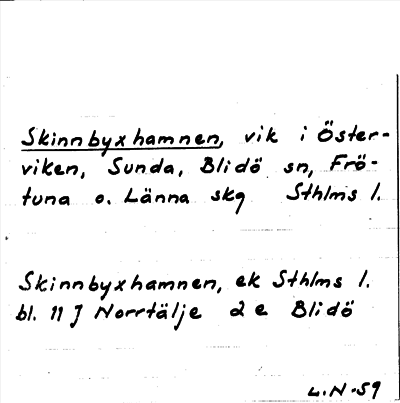 Skinnbyxhamnen, vik i Öster-
viken, Sunda, Blidö sn, Frö-
tuna o. Länna skg Sthlms l.
Skinnbyxhamnen, ek Sthlms l.
bl. 11 J Norrtälje 2 e Blidö
L.N-59